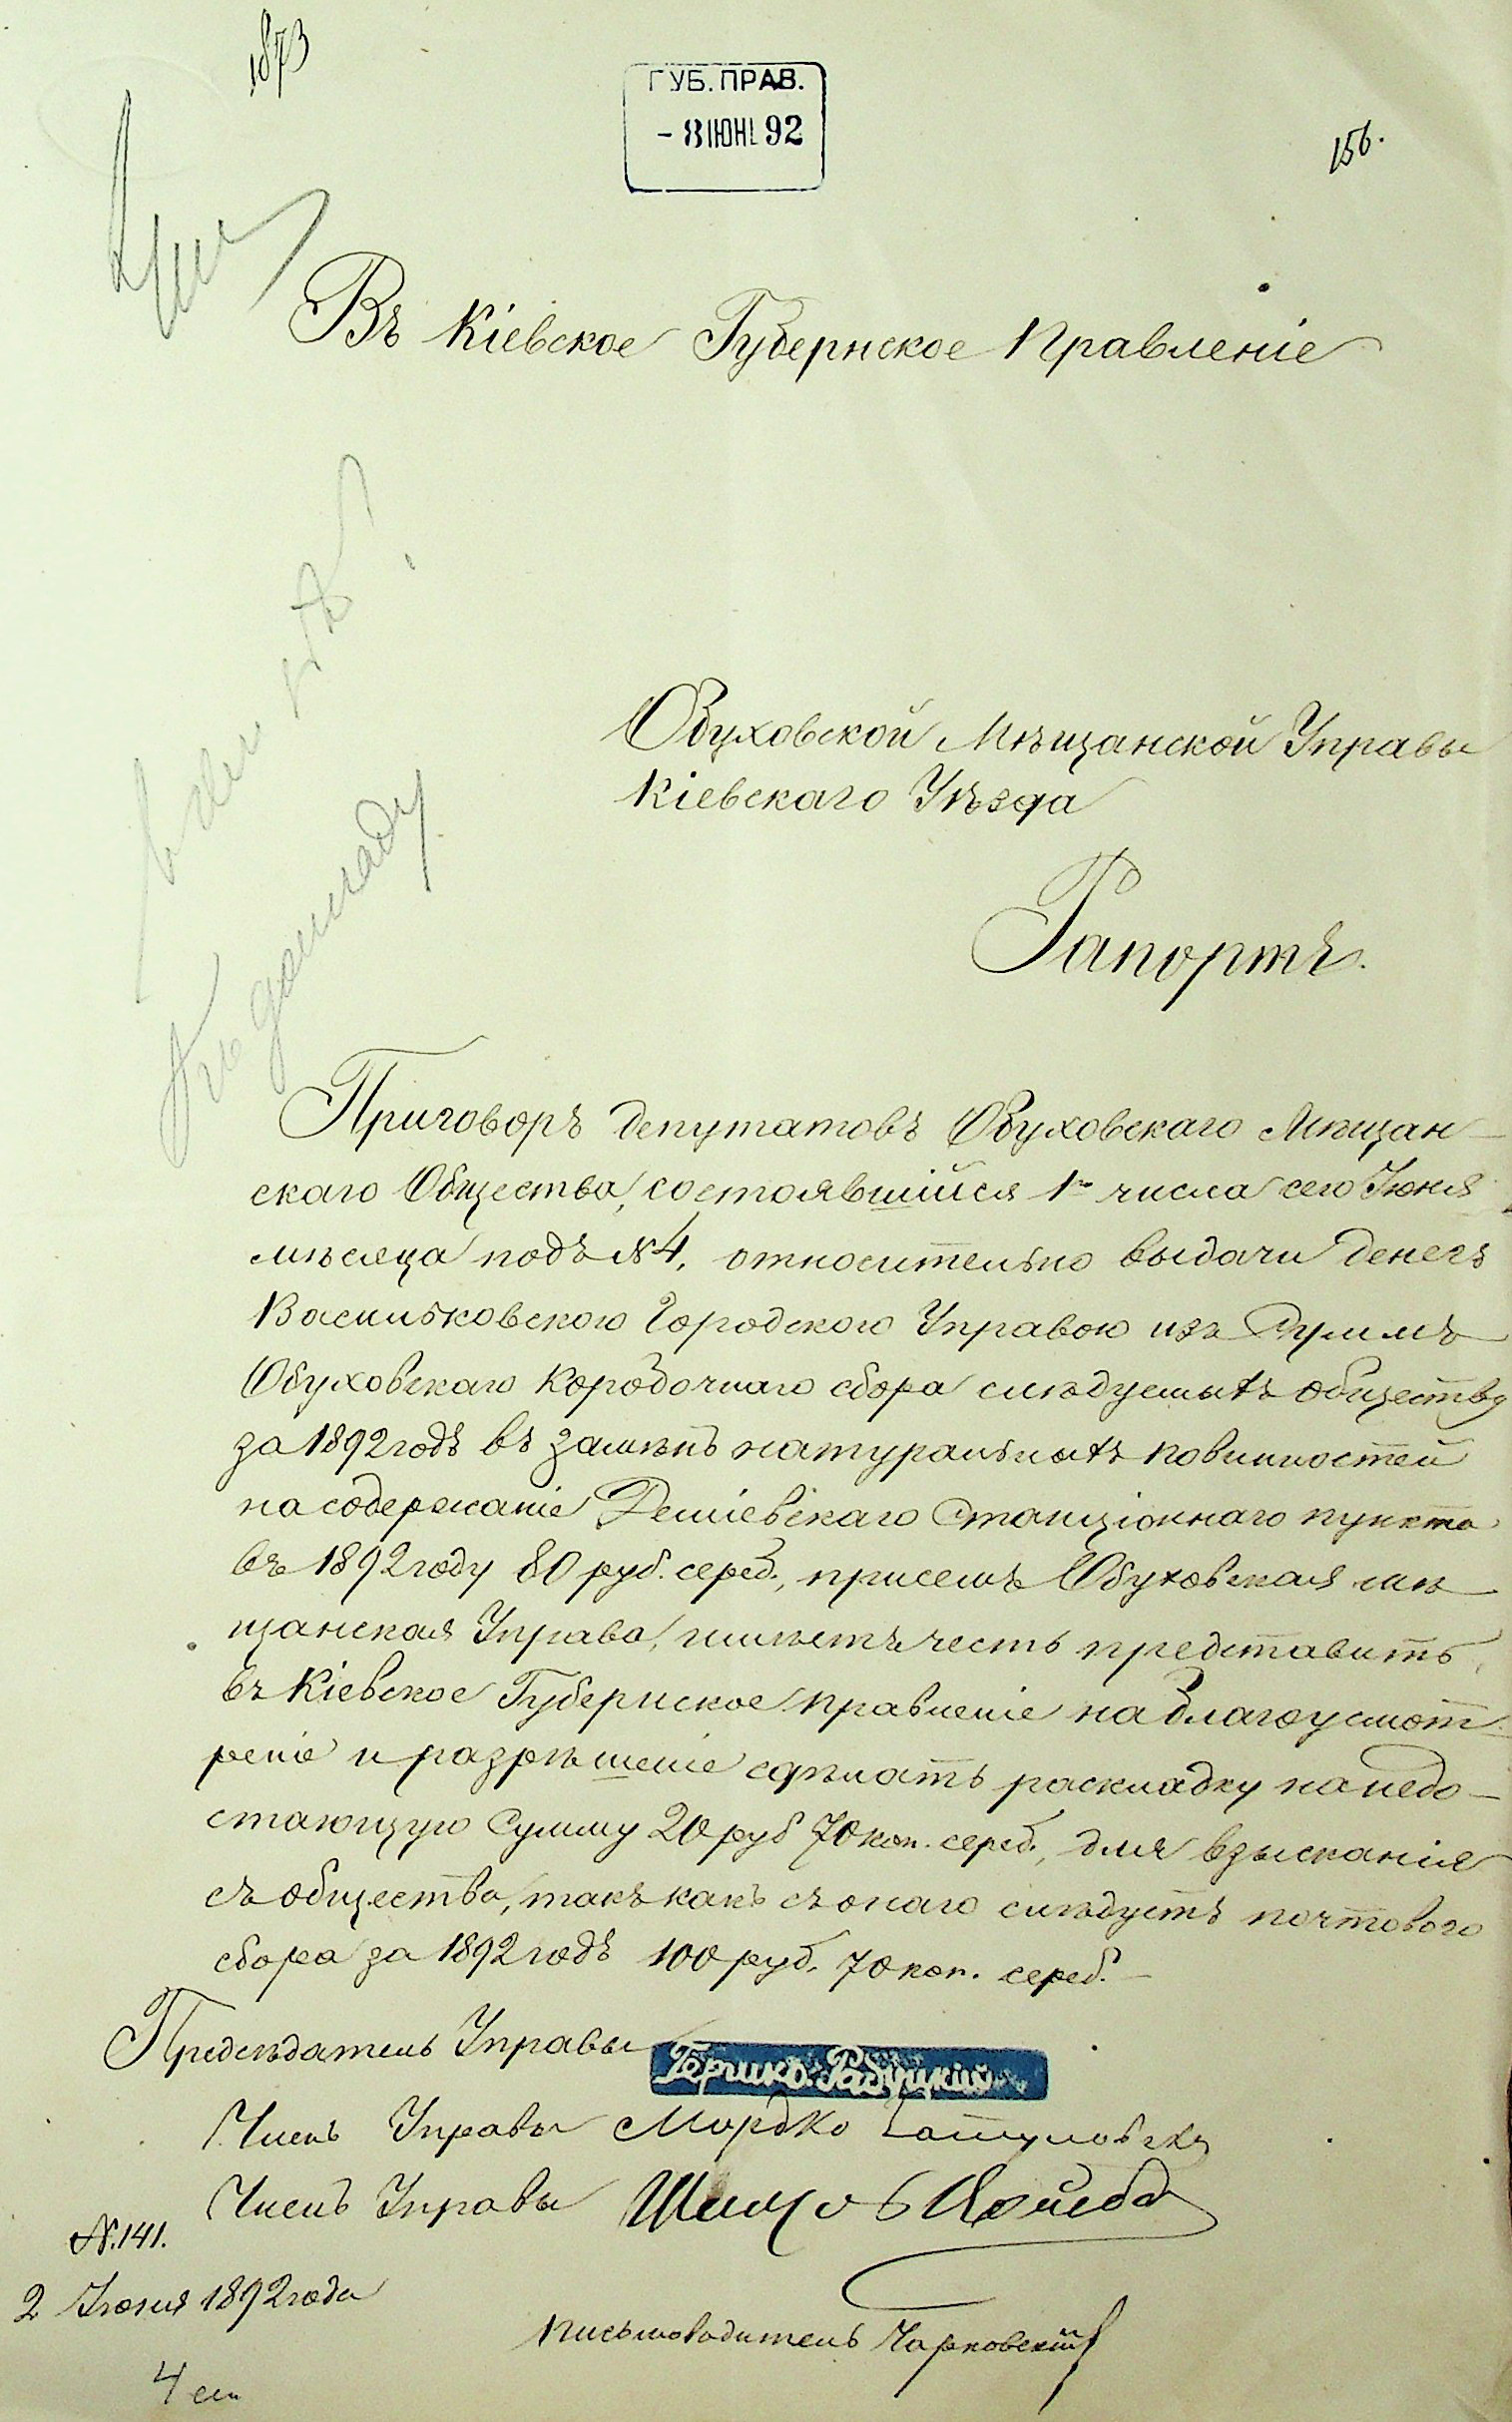 1873
ГУБ. ПРАВ.
- 8 ІЮН. 92
156.
Въ Кіевское Губернское Правленіе
Обуховской Мѣщанской Управы
Кіевскаго Уѣзда
Рапортъ.
Къ докладу
Приговоръ депутатовъ Обуховскаго Мѣщан-
скаго Общества, состоявшійся 1го числа сего Іюня
мѣсяца подъ №4, относительно выдачи денегъ
Васильковскою Городскою Управою изъ Суммъ
Обуховскаго Коробочнаго сбора слѣдуемыхъ обществу
за 1892 годъ въ замѣнъ натуральныхъ повинностей
на содержаніе Станціоннаго пункта
въ 1892 году 80 руб. сереб., при семъ Обуховская мѣ
щанская Управа, имѣетъ честь представить
въ Кіевское Губернское Правленіе на благоусмот-
реніе и разрѣшеніе сдѣлать раскладку на недо-
стающую Сумму 20 руб 70 коп. сереб., для взысканія
съ общества, такъ какъ съ онаго слѣдуетъ почтоваго
сбора за 1892 годъ 100 руб. 70 коп. сереб.-
Предсѣдатель Управы Гершко Радуцкій
Членъ Управы Мордко
Членъ Управы
N. 141.
2 Іюня 1892 года
Письмоводитель Чарковскій